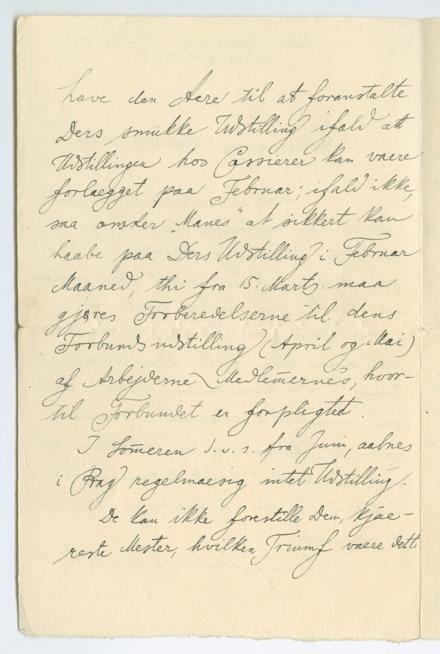 have den Aere til at foranstalte
Ders smukke Udstilling ifald att
Udstillingen hos Cassierer kan vaere
forlaegget paa Februar; ifald ikke,
saa onsker „Manes" at sikkert kan
haabe paa Ders Udstilling i Februar
Maaned, thi fra 15. Marts maa
gjøres Forberedelserne til dens
Forbundsudstilling (April og Mai)
af Arbejderne Medlemernes, hvor-
til Forbundet er forpligtet.
I Someren d. v. s. fra Juni, aabnes
i Prag regelmaesig intet Udstilling.
De kan ikke forestille Dem, kjae-
reste Mester, hvilken Triumf vaere dette